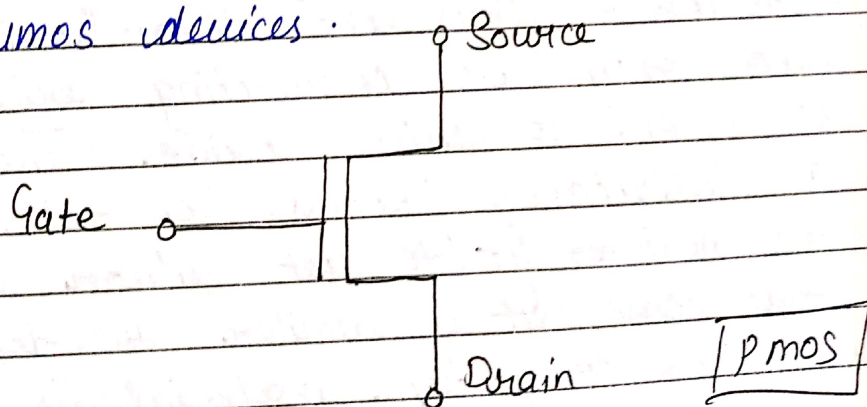 devices.
Source
Gate
Drain
PMOS